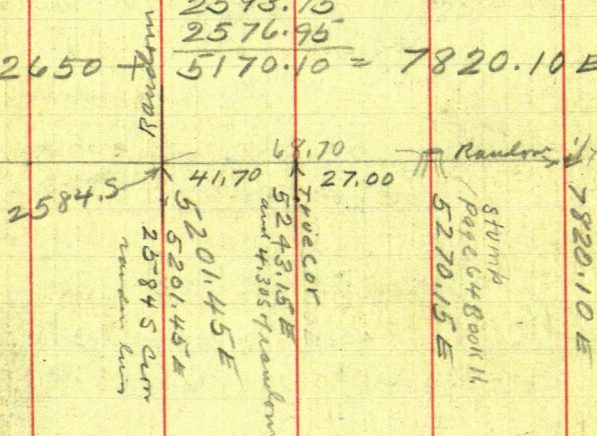 2593.15
2576.95
2650 + 5170.10 = 7820.10 E
Random
68.70
Random
2584.S
41.70
27.00
5201.45 E
5201.45 E
2584 S
random line
True Cor
5243.15 E
and 4.30 S of random
stump
page 64 Book 11
5270.15 E
7820.10 E